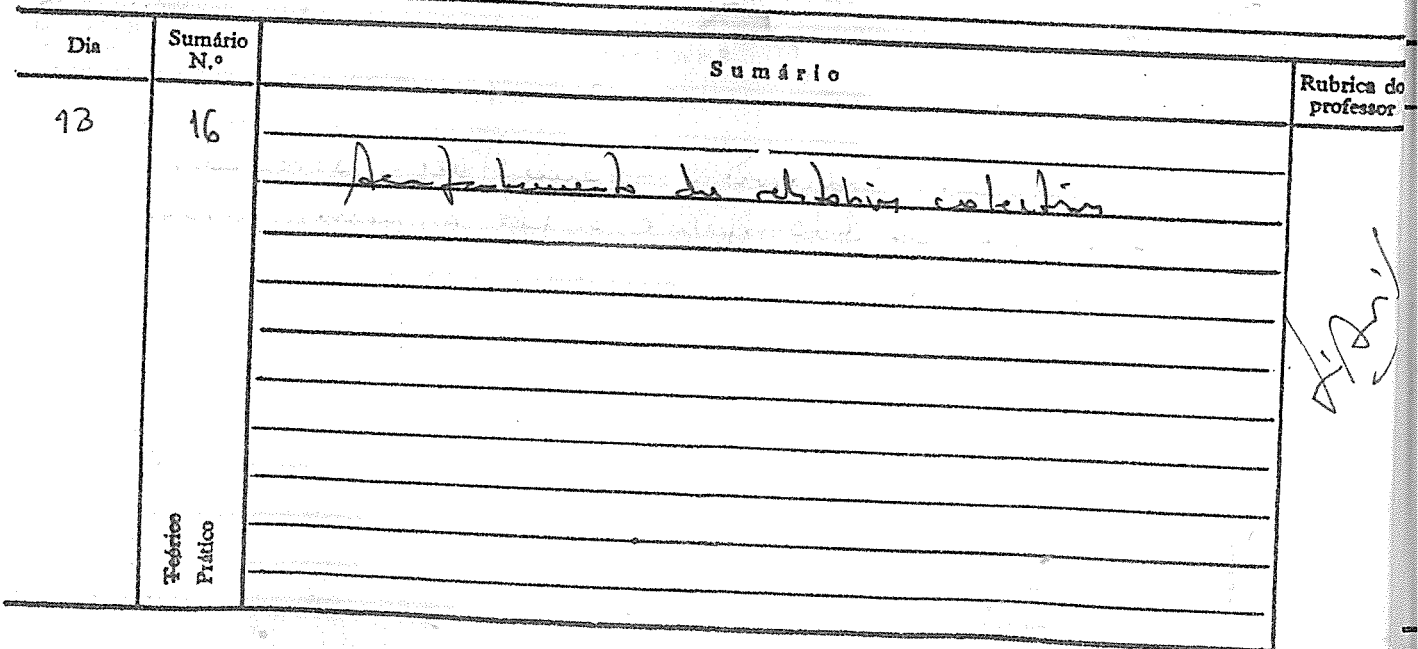 Dia Sumário N.º Sumário Rubrica do professor
13 16
dos relatórios colectivos
Teórico
Prático